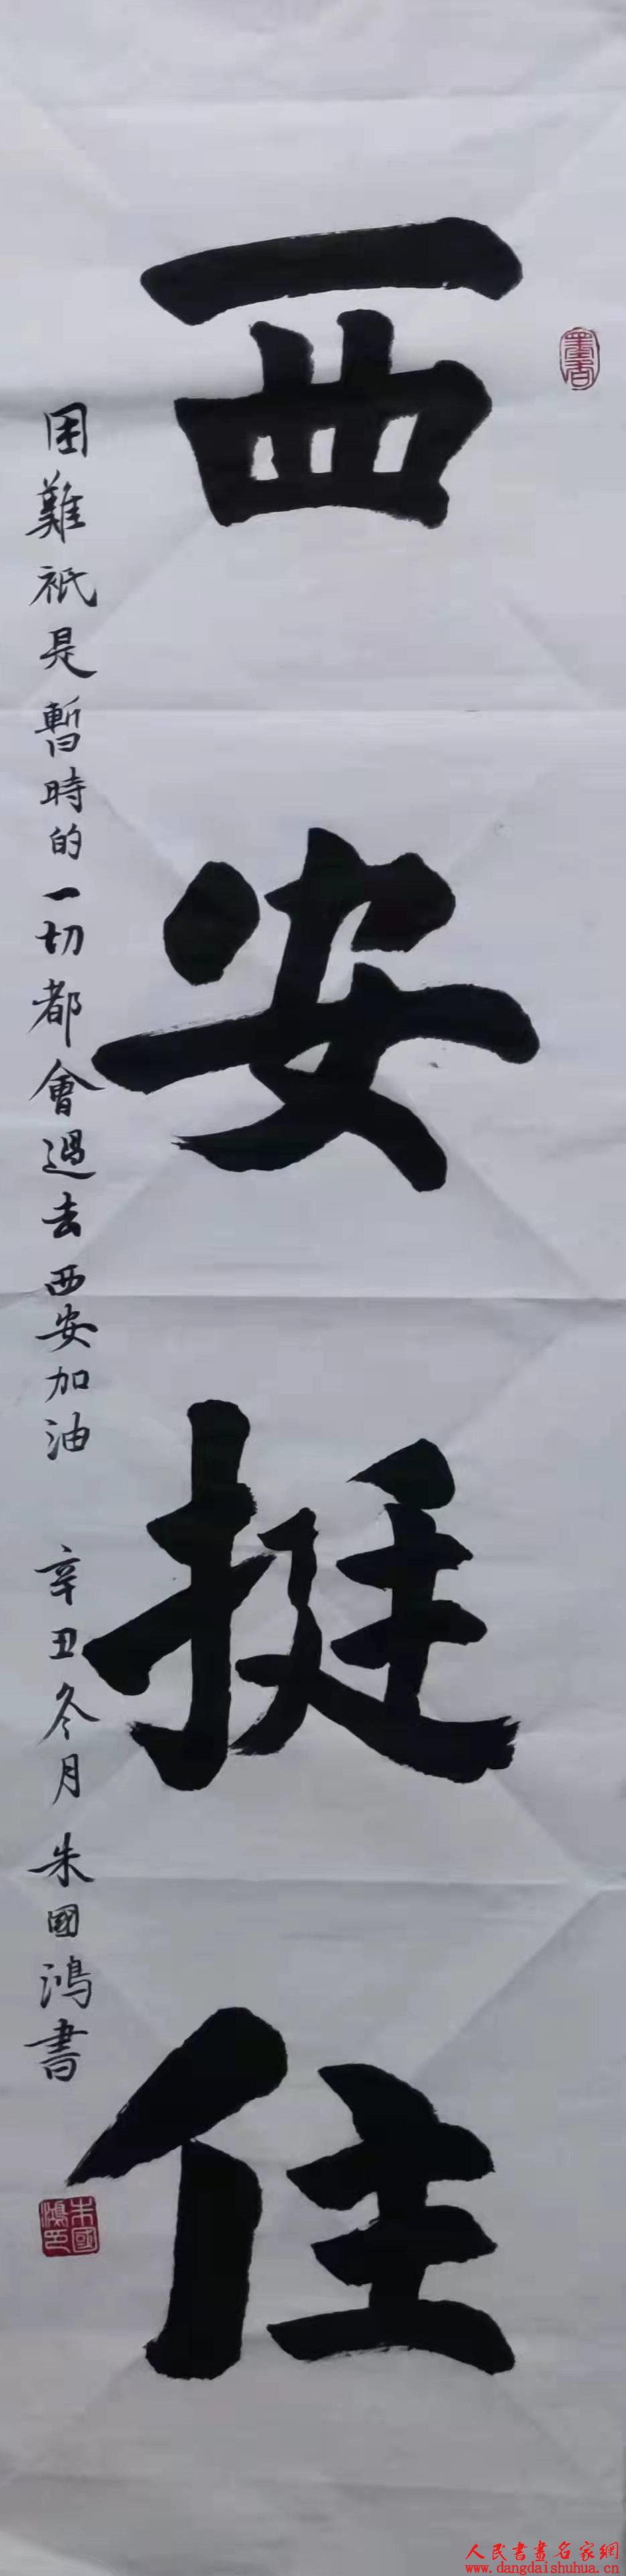 西安挺住
困難祇是暫時的一切都會過去西安加油 辛丑冬月 朱國鴻書
朱國鴻印
人民書畫名家網
www.dangdaishuhua.cn